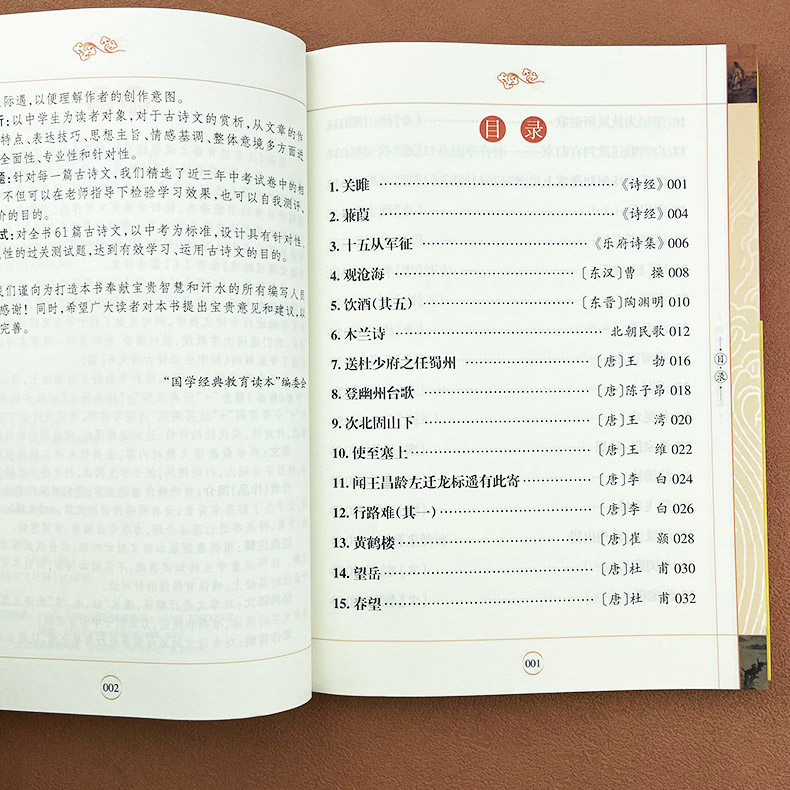 际遇，以便理解作者的创作意图。
析：以中学生为读者对象，对于古诗文的赏析，从文章的作
特点、表达技巧、思想主旨、情感基调、整体意境多方面进
全面性、专业性和针对性。
题：针对每一篇古诗文，我们精选了近三年中考试卷中的相
不但可以在老师指导下检验学习效果，也可以自我测评，
价的目的。
式：对全书61篇古诗文，以中考为标准，设计具有针对性、
性的过关测试题，达到有效学习、运用古诗文的目的。
我们谨向为打造本书奉献宝贵智慧和汗水的所有编写人员
感谢！同时，希望广大读者对本书提出宝贵意见和建议，以
完善。
“国学经典教育读本”编委会
002
目录
1. 关雎 《诗经》001
2. 蒹葭 《诗经》004
3. 十五从军征 《乐府诗集》006
4. 观沧海 〔东汉〕曹 操 008
5. 饮酒(其五) 〔东晋〕陶渊明 010
6. 木兰诗 北朝民歌 012
7. 送杜少府之任蜀州 〔唐〕王 勃 016
8. 登幽州台歌 〔唐〕陈子昂 018
9. 次北固山下 〔唐〕王 湾 020
10. 使至塞上 〔唐〕王 维 022
11. 闻王昌龄左迁龙标遥有此寄 〔唐〕李 白 024
12. 行路难(其一) 〔唐〕李 白 026
13. 黄鹤楼 〔唐〕崔 颢 028
14. 望岳 〔唐〕杜 甫 030
15. 春望 〔唐〕杜 甫 032
001
目·录